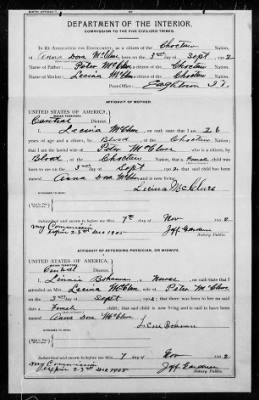 DEPARTMENT OF THE INTERIOR,
COMMISSION TO THE FIVE CIVILIZED TRIBES.
IN RE APPLICATION FOR ENROLLMENT, as a citizen of the Choctaw Nation,
of Anna Dora McClure, born on the 3rd day of Sept, 1902
Name of Father: Peter McClure a citizen of the Choctaw Nation.
Name of Mother: Lecina McClure a citizen of the Choctaw Nation.
Post-Office: Eagletown I.T.
AFFIDAVIT OF MOTHER.
UNITED STATES OF AMERICA,
INDIAN TERRITORY,
Central District.
I, Lecina McClure, on oath state that I am 26
years of age and a citizen by Blood, of the Choctaw Nation;
that I am the lawful wife of Peter McClure, who is a citizen, by
Blood of the Choctaw Nation; that a Female child was
born to me on 3rd day of Sept, 1902, that said child has been
named Anna Dora McClure, and is now living.
Lecina McClure
Subscribed and sworn to before me this 7th day of Nov 1902
My Commission Expires 23rd Dec 1905
Jeff Gardner
Notary Public.
AFFIDAVIT OF ATTENDING PHYSICIAN, OR MIDWIFE.
UNITED STATES OF AMERICA,
INDIAN TERRITORY,
Central District.
I, Bohanan, a Nurse, on oath state that I
attended on Mrs. Lecina McClure, wife of Peter McClure
on the 3rd day of Sept, 1902; that there was born to her on said
date a Female child; that said child is now living and is said to have
been named Anna Dora McClure
Bohanan
Subscribed and sworn to before me this 7 day of Nov 1902
My Commission Expires 23rd Dec 1905
Jeff Gardner
Notary Public.